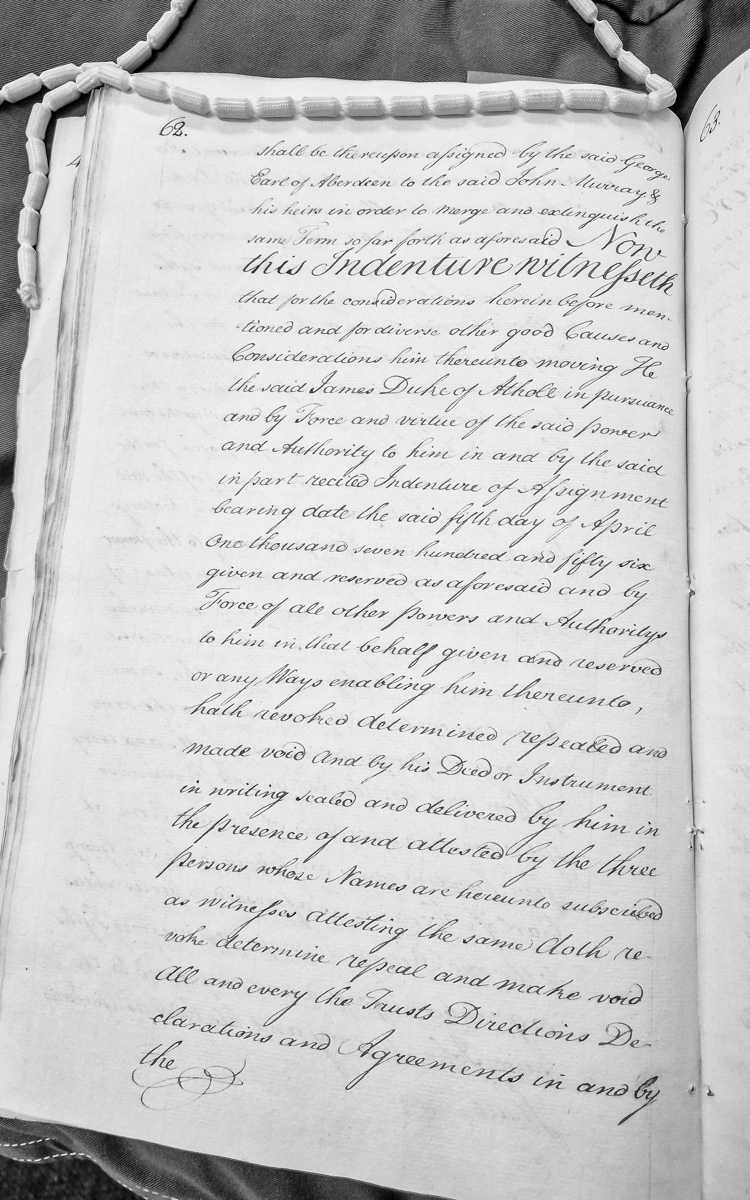 62.
shall be thereupon assigned by the said George
Earl of Aberdeen to the said John Murray &
his heirs in order to merge and extinguish the
same Term so far forth as aforesaid Now
this Indenture witnesseth
that for the considerations herein before men-
-tioned and for diverse other good Causes and
Considerations him thereunto moving He
the said James Duke of Atholl in pursuance
and by Force and virtue of the said power
and Authority to him in and by the said
in part recited Indenture of Assignment
bearing date the said fifth day of April
One thousand seven hundred and fifty six
given and reserved as aforesaid and by
Force of all other powers and Authoritys
to him in that behalf given and reserved
or any Ways enabling him thereunto,
hath revoked determined repealed and
made void and by his Deed or Instrument
in writing sealed and delivered by him in
the presence of and attested by the three
persons whose Names are hereunto subscribed
as witnesses attesting the same doth re-
voke determine repeal and make void
All and every the Trusts Directions De-
clarations and Agreements in and by
the
63.